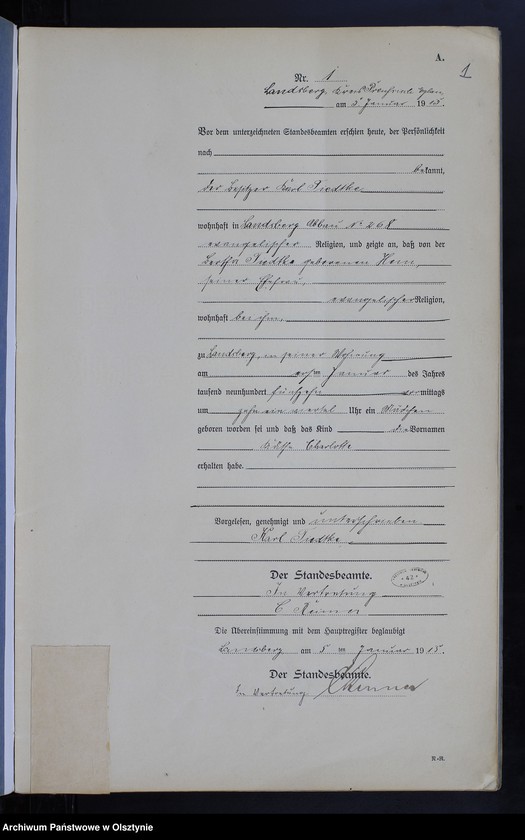 A.
1
Nr. 1
Landsberg, Kreis
am 5 Januar 1915.
Vor dem unterzeichneten Standesbeamten erschien heute, der Persönlichkeit
nach
bekannt,
der Besitzer Karl Tiedtke
wohnhaft in Landsberg Abbau No 268
evangelischer Religion, und zeigte an, daß von der
Bertha Tiedtke geborenen
seiner Ehefrau,
evangelischer Religion,
wohnhaft bei ihm,
zu Landsberg, in seiner Wohnung
am ersten Januar des Jahres
tausend neunhundert fünfzehn vormittags
um zehn ein viertel Uhr ein Mädchen
geboren worden sei und daß das Kind die Vornamen
Charlotte
erhalten habe.
Vorgelesen, genehmigt und unterschrieben
Karl Tiedtke
Der Standesbeamte.
In Vertretung
Die Übereinstimmung mit dem Hauptregister beglaubigt
Landsberg am 5 ten Januar 1915.
Der Standesbeamte.
In Vertretung
Archiwum Państwowe w Olsztynie